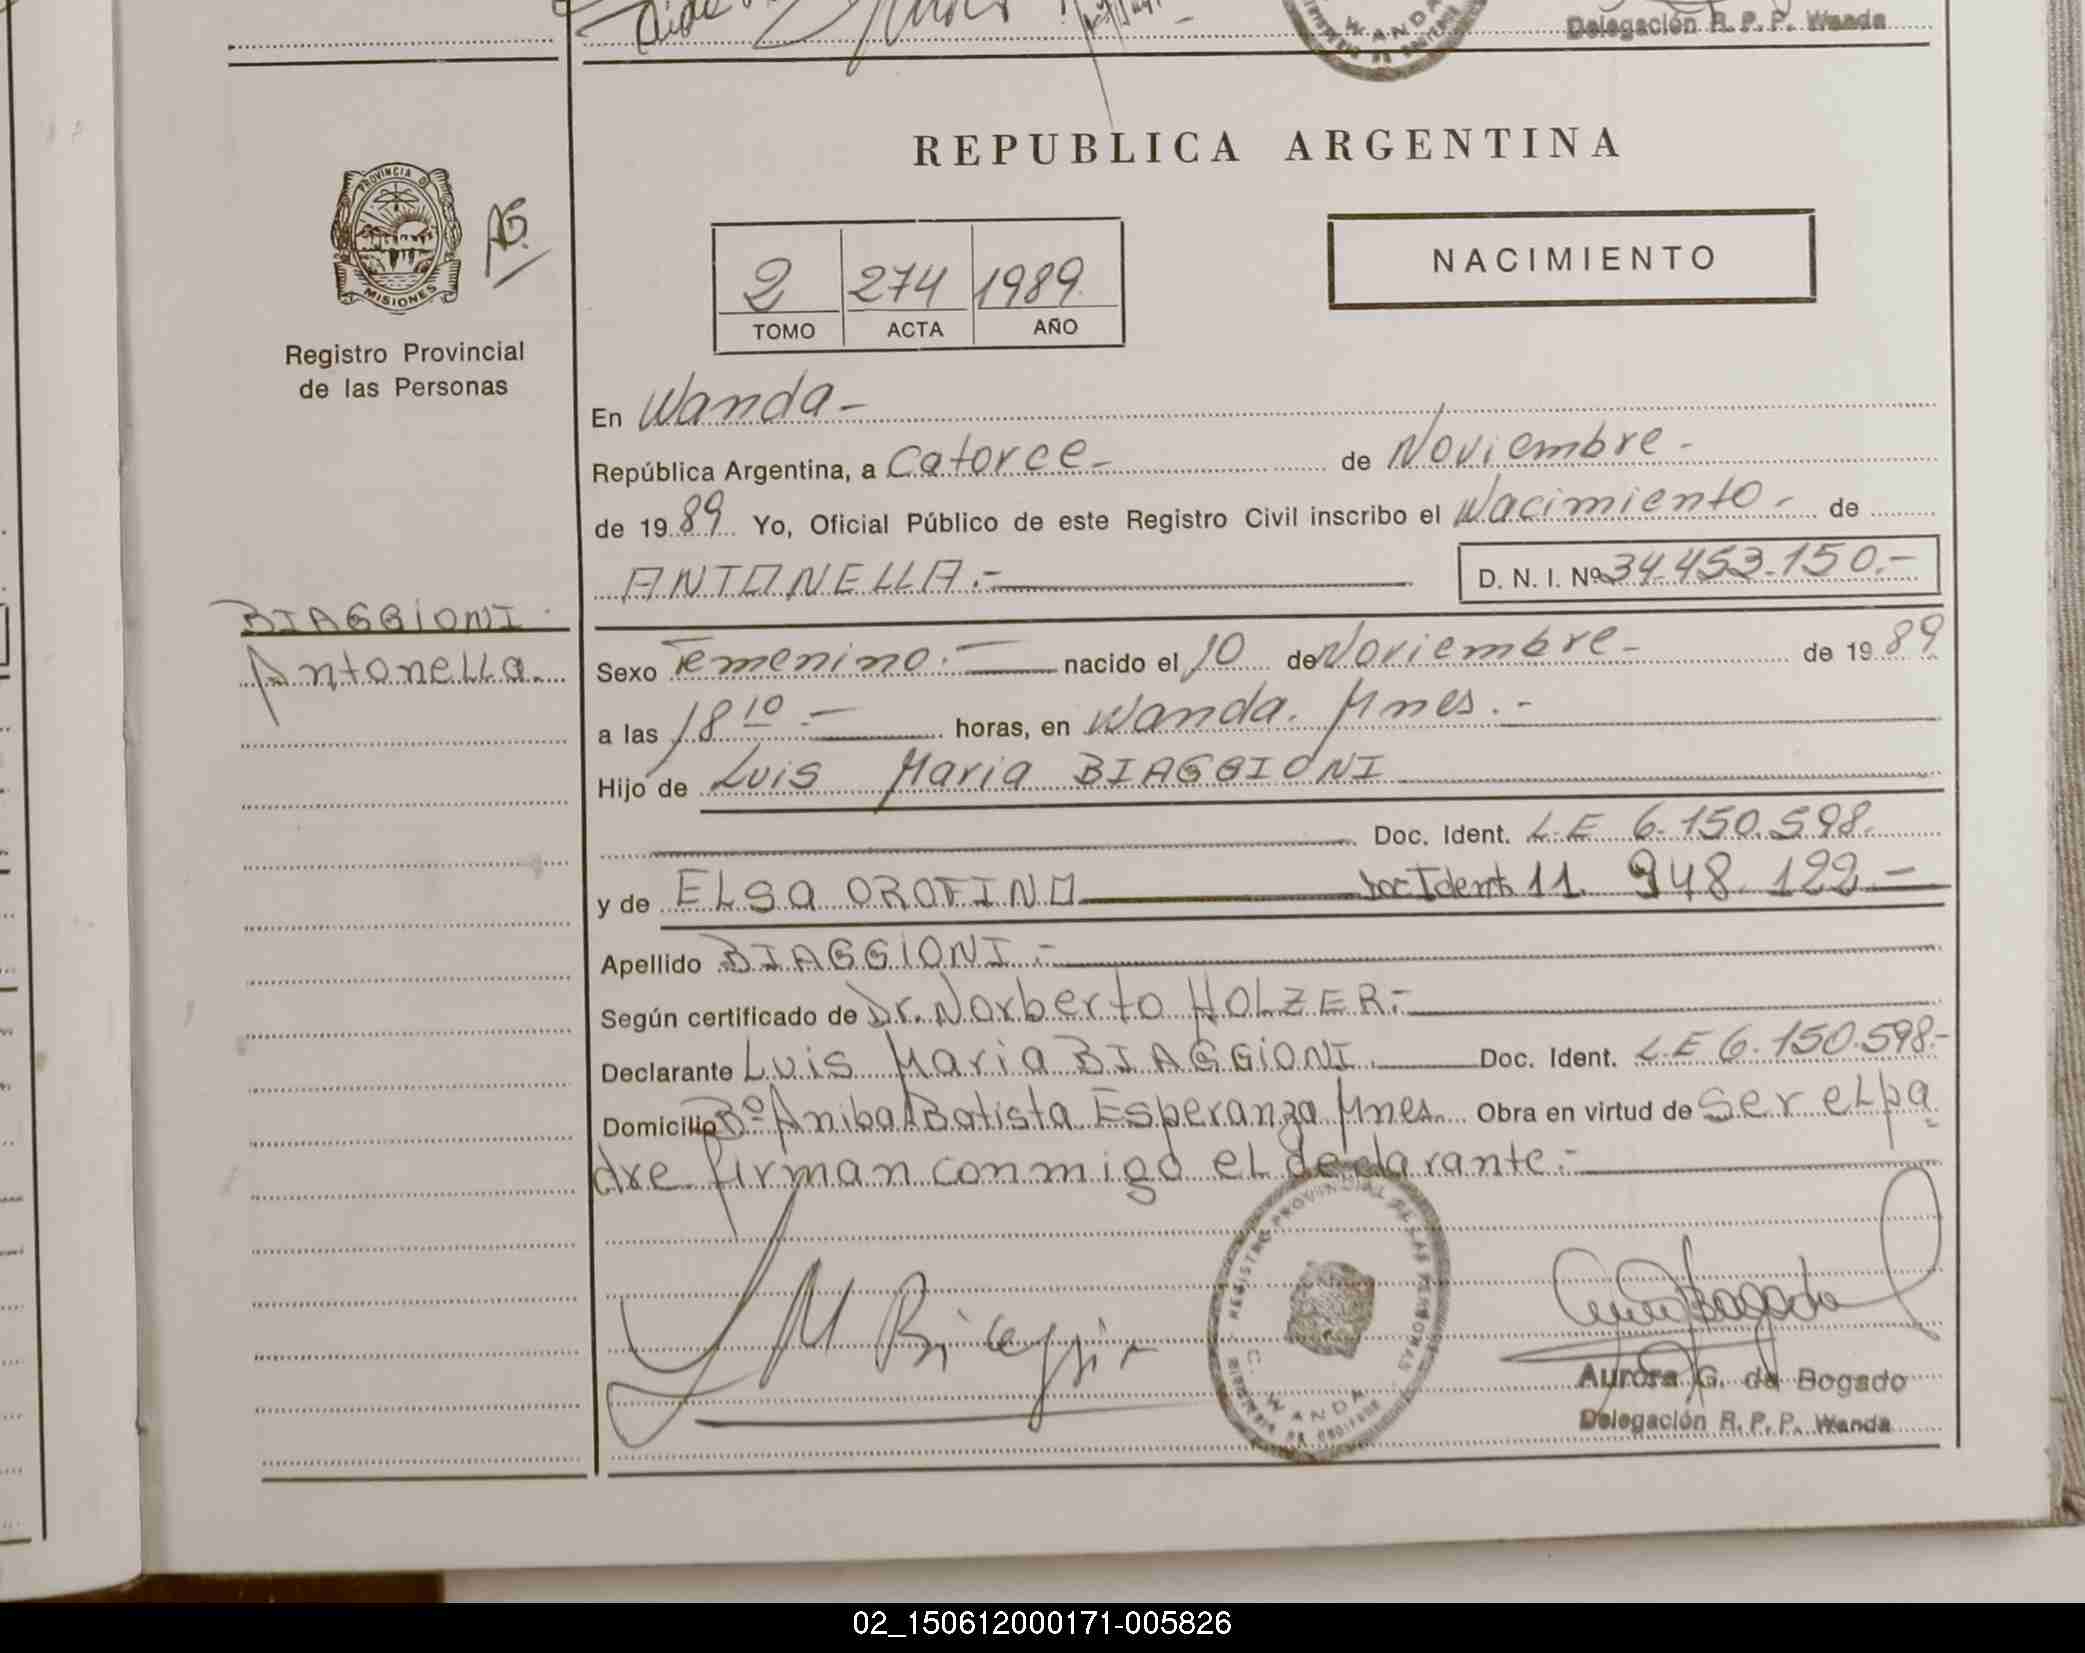 Delegación R. P. P. Wanda
WANDA
REPUBLICA ARGENTINA
PROVINCIA D
MISIONES
AG.
2 274 1989
TOMO ACTA AÑO
NACIMIENTO
Registro Provincial
de las Personas
En Wanda -
República Argentina, a Catorce - de Noviembre -
de 19 89 Yo, Oficial Público de este Registro Civil inscribo el Nacimiento - de
ANTONELLA.- D. N. I. Nº 34.453.150.-
BIAGGIONI.
Antonella.
Sexo Femenino.- nacido el 10 de Noviembre - de 19 89
a las 18 10.- horas, en Wanda. Mnes.-
Hijo de Luis Maria BIAGGIONI
Doc. Ident. L.E 6.150.598.
y de ELSA OROFINO Doc Ident. 11.948.122.-
Apellido BIAGGIONI.-
Según certificado de Dr. Norberto HOLZER.-
Declarante Luis Maria BIAGGIONI. Doc. Ident. L.E 6.150.598.-
Domicilio Bº Anibal Batista Esperanza Mnes. Obra en virtud de ser el pa
dre firman conmigo el declarante.-
REGISTRO PROVINCIAL DE LAS PERSONAS
WANDA
Aurora G. de Bogado
Delegación R. P. P. Wanda
02_150612000171-005826